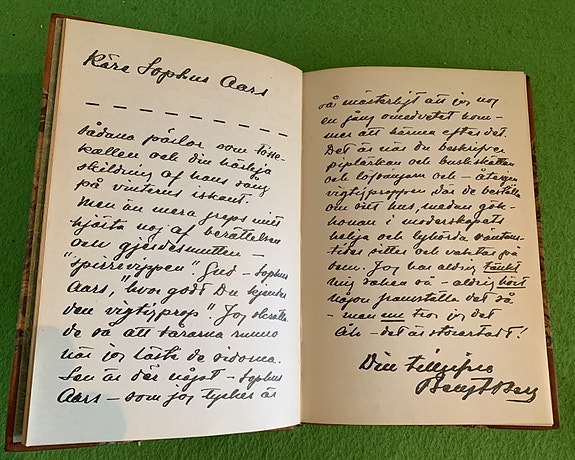 Käre Sophus Aars
— — — — — — — — — —
sådana pärlor som fosse-
kallen och din härliga
skildring af hans sång
på vinterns iskant.
Men än mera greps mitt
hjärta nog af berättelsen
om gjerdesmutten –
"spirrevippen". Gud – Sophus
Aars, "hvor godt Du kjender
den vigtigprop" Jog skrattade
de så att tårarna runno
när jog läste de sidorna.
Sen är där något – Sophus
Aars – som jog tycker är
så mästerligt att jog nog
en gång omedvetet kom-
mer att härma efter det.
Det är när du beskrifver
piplärkan och buskskvättan
och löfsångarn och – återigen
vigtigproppen där de beställa
om sitt hus, medan gök-
honan i moderskapets
helga och lyhörda väntans-
tider sitter och vaktar på
dem. Jog har aldrig tänkt
mig saken så – aldrig hört
någon framställa det så
– men nu tror jog det
Åh – det är storartadt!
Din tillgifne
Bengt Berg